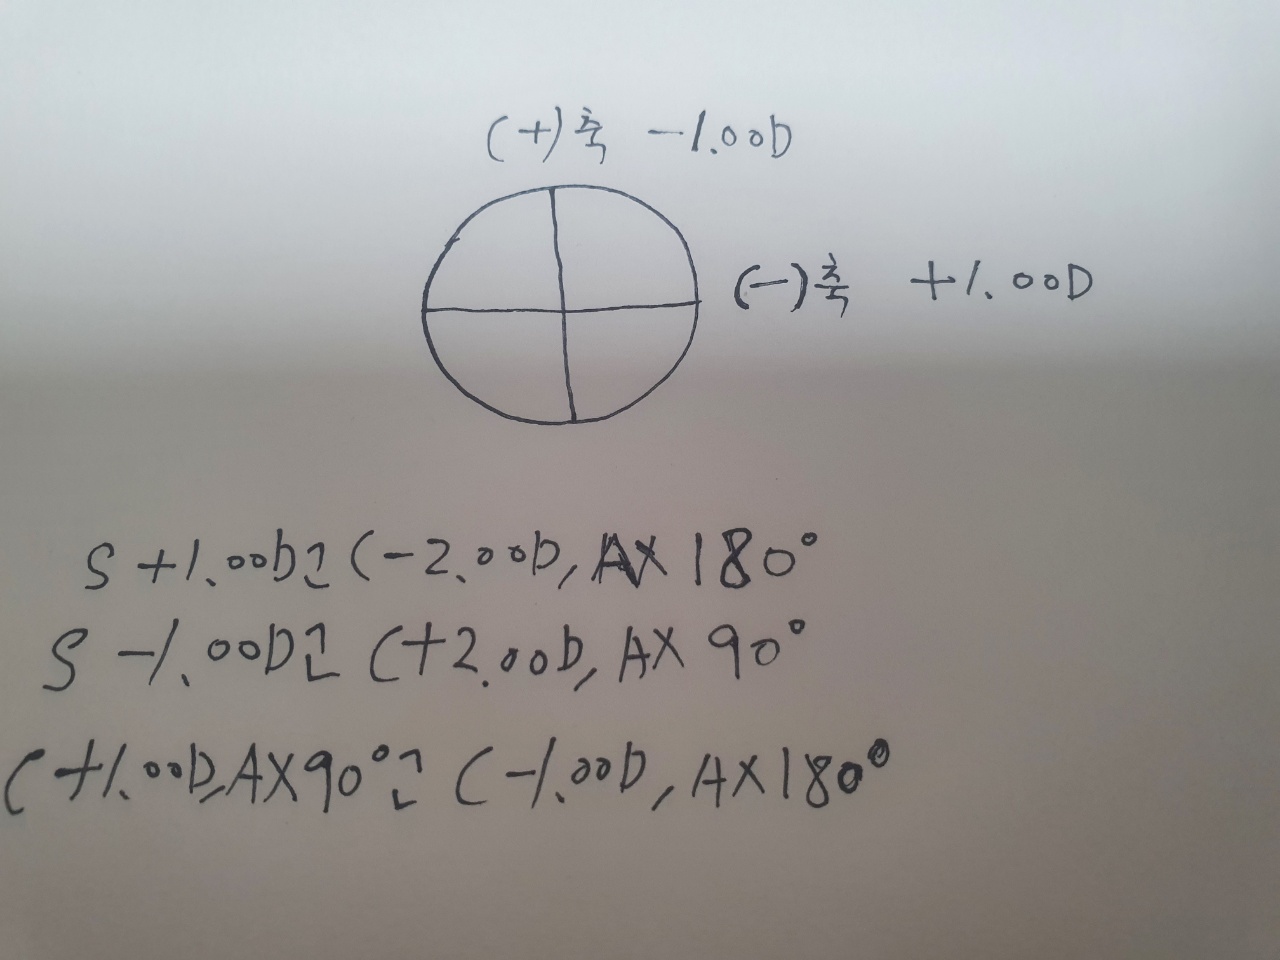 (+)축 -1.00D
(-)축 +1.00D
S+1.00D⊇C-2.00D, AX 180°
S-1.00D⊇C+2.00D, AX 90°
C+1.00D, AX90°⊇C-1.00D, AX180°